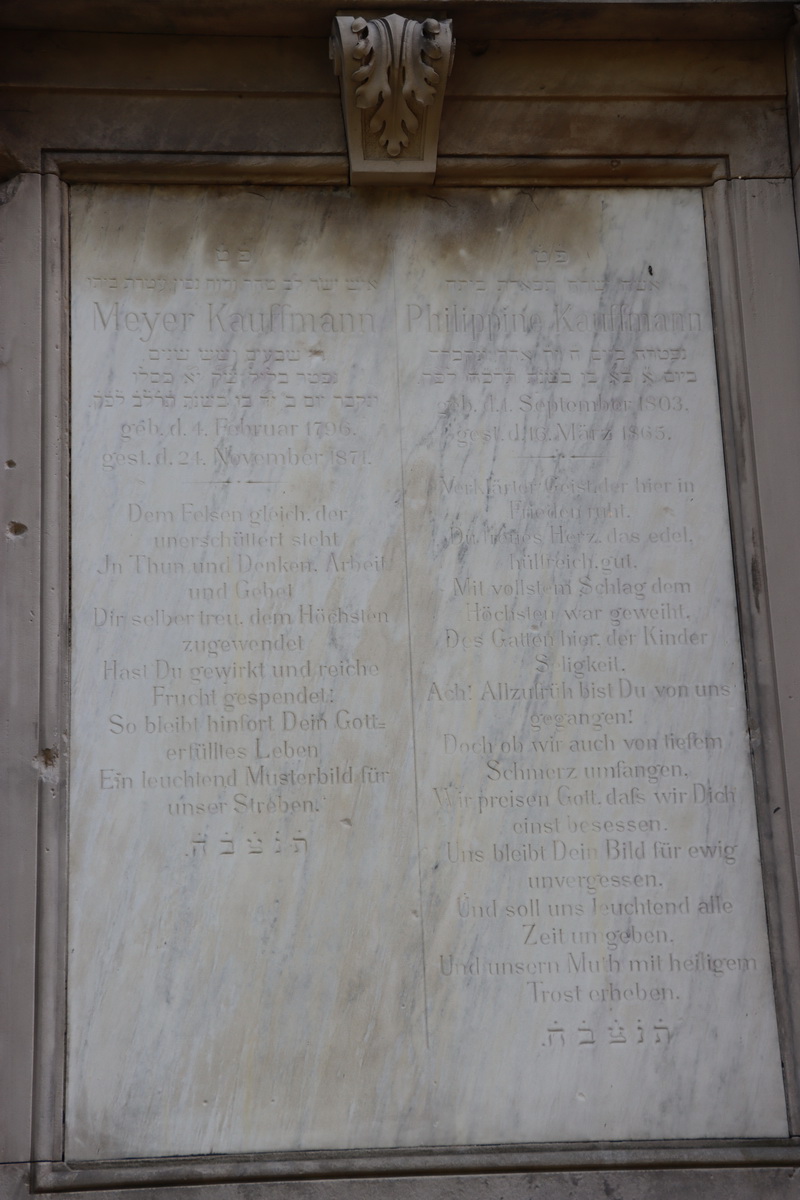 פ״ט
איש ישר לב
Meyer Kauffmann
שבעים ושש שנים
נפטר
geb. d. 4. Februar 1796.
gest. d. 24. November 1871.
Dem Felsen gleich, der
unerschüttert steht
Jn Thun und Denken, Arbeit
und Gebet
Dir selber treu, dem Höchsten
zugewendet
Hast Du gewirkt und reiche
Frucht gespendet!
So bleibt hinfort Dein Gott-
erfülltes Leben
Ein leuchtend Musterbild für
unser Streben.
ת נ צ ב ה
פ״ט
אשה תפארת ביתה
Philippine Kauffmann
נפטרה ביום
ביום
geb. d. 1. September 1803.
gest. d. 16. März 1865.
Verklärter Geist, der hier in
Frieden ruht,
Du Herz, das edel,
hülfreich, gut,
Mit vollstem Schlag dem
Höchsten war geweiht,
Des Gatten hier, der Kinder
Seligkeit,
Ach! Allzufrüh bist Du von uns
gegangen!
Doch ob wir auch von tiefem
Schmerz umfangen,
Wir preisen Gott, daſs wir Dich
einst besessen.
Uns bleibt Dein Bild für ewig
unvergessen.
Und soll uns leuchtend alle
Zeit umgeben,
Und unsern Muth mit heiligem
Trost erheben.
ת נ צ ב ה